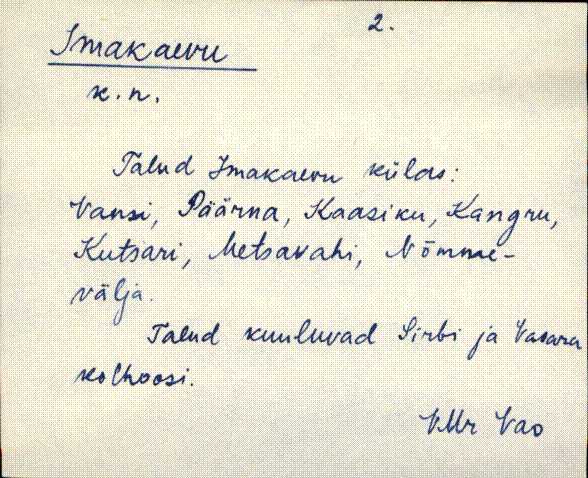 2.
Imakaevu
k.n.
Talud Imakaevu külas:
Vansi, Päärna, Kaasiku, Kangru,
Kutsari, Metsavahi, Nõmme-
välja.
Talud kuuluvad Sirbi ja Vasara
kolhoosi.
VMr Vao